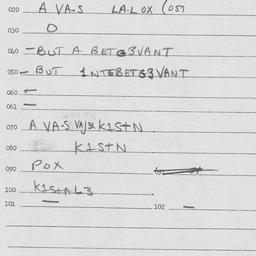 020 A VA·S LA·L OX (057
030 O
040 – BUT A BETG3VANT
050 – BUT 1NTGBETG3VANT
060 –
061 –
070 A VA·S K1S+N
080 K1S+N
090 POX
100 K1S+AL3
101 – 102 –